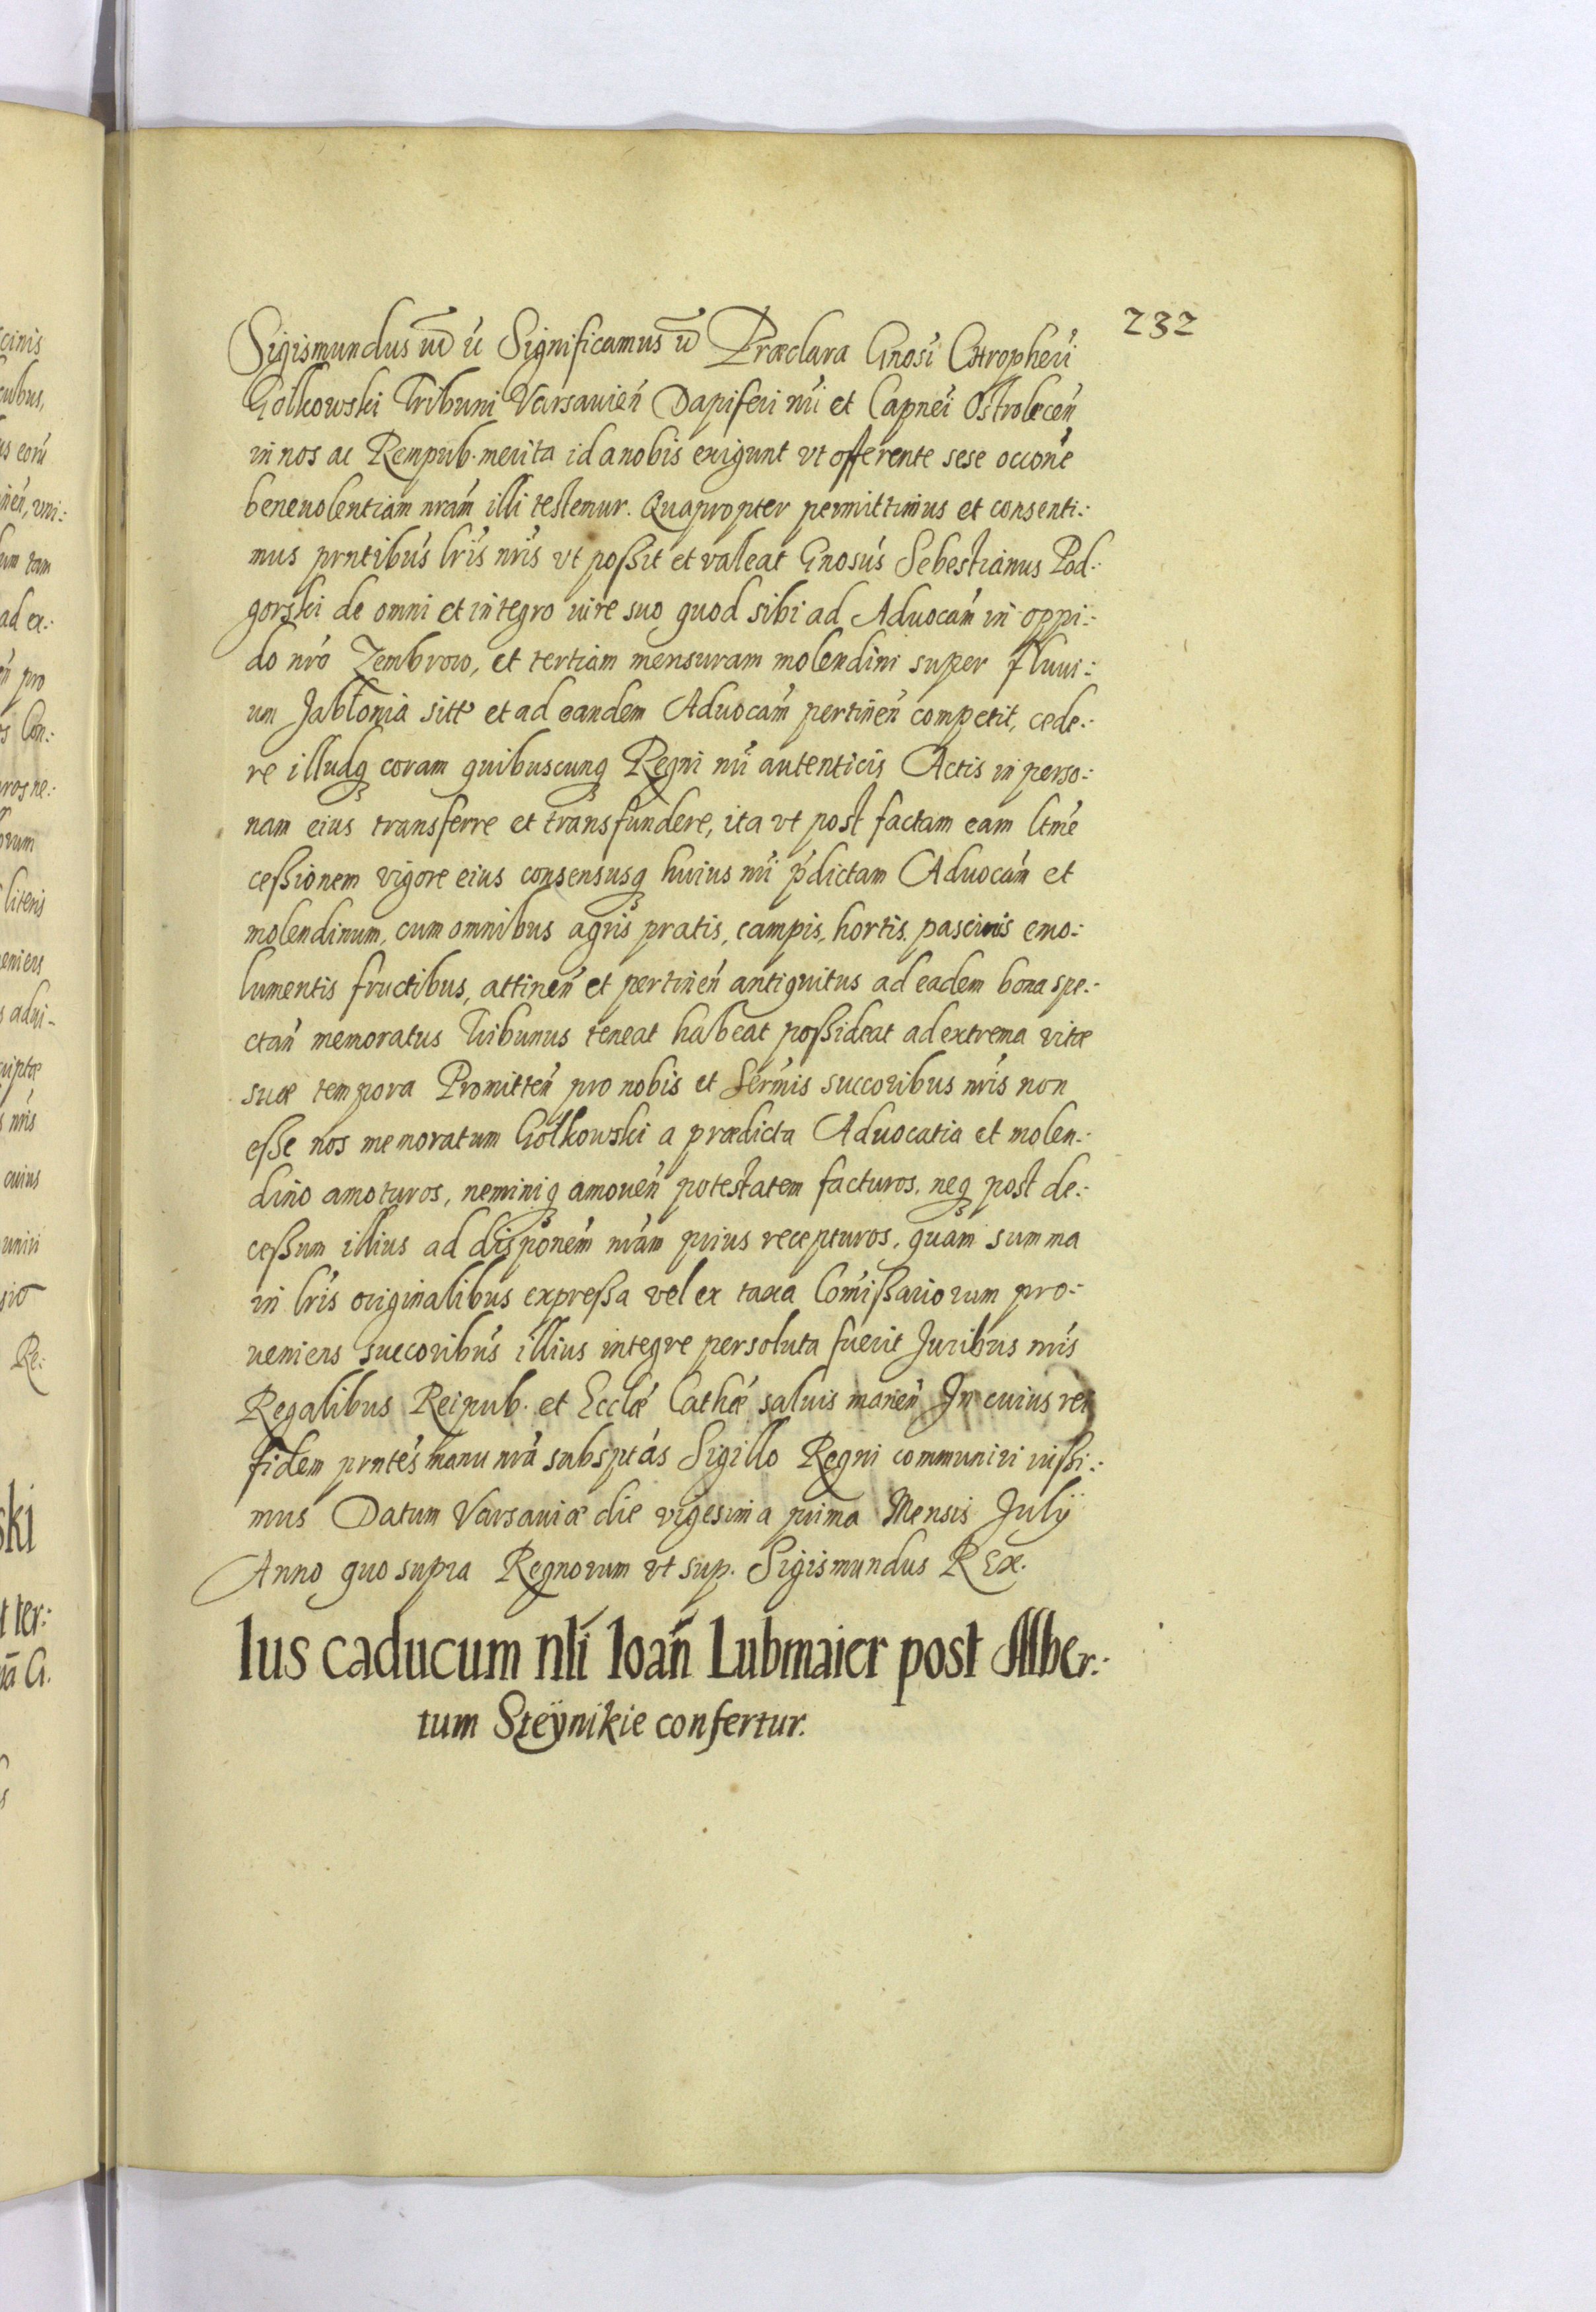 232
Sigismundus etc Significamus Præclara Gnosi Chropheri
Gółkowski Tribuni Varsavień Dapiferi nri et Capnei Ostrolęceń
in nos ac Rempub. merita id a nobis exigunt vt offerente sese occone
benevolentiam nram illi testemur. Quapropter permittimus et consenti:-
mus prntibus lris nris vt possit et valeat Gnosus Sebestianus Pod-
gorski de omni et integro iure suo quod sibi ad Aduocam in oppi:-
do nro Zembrow, et tertiam mensuram molendini super fluui:-
um Jabłonia sitt et ad eandem Aduocam pertineń competit, cede:-
re illudq coram quibuscunq Regni nri autenticis Actis in perso:-
nam eius transferre et transfundere, ita vt post factam eam ltme
cessionem vigore eius consensusq huius nri pdictam Aduocam et
molendinum, cum omnibus agris pratis, campis, hortis, pascuis emo:-
lumentis fructibus, attineń et pertineń antiquitus ad eadem bona spe:-
ctań memoratus Tribunus teneat habeat possideat ad extrema vitæ
suæ tempora Promitteń pro nobis et Sermis succoribus nris non
esse nos memoratum Gółkowski a prædicta Aduocatia et molen:-
dino amoturos, neminiq amoueń potestatem facturos, neq post de:-
cessum illius ad disponem nram prius recepturos, quam summa
in lris originalibus expressa vel ex taxa Comissariorum pro:-
ueniens succoribus illius integre persoluta fuerit Juribus nris
Regalibus Reipub. et Ecclæ Cathæ saluis maneń In cuius rei
fidem prntes manu nra subsptas Sigillo Regni communiri iussi:-
mus Datum Varsauiæ die vigesima prima Mensis Julÿ
Anno quo supra Regnorum vt sup. Sigismundus REx.
Ius caducum nli Ioań Lubmaier post Alber:-
tum Steÿnikie confertur.